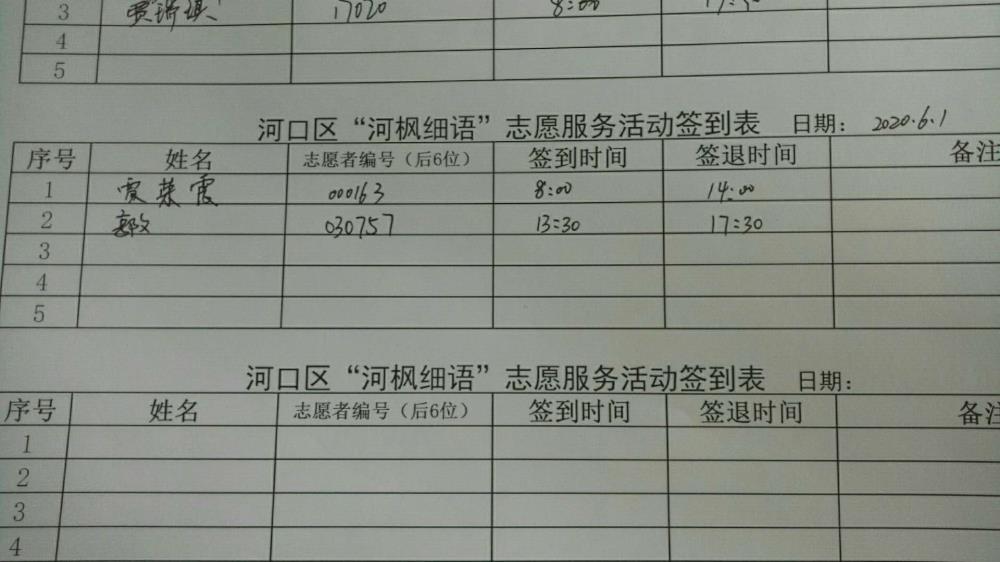 3 贾瑞琪 17020 8:00
4
5
河口区“河枫细语”志愿服务活动签到表 日期： 2020.6.1
序号 姓名 志愿者编号（后6位） 签到时间 签退时间 备注
1 000163 8:00 14:00
2 郭文 030757 13:30 17:30
3
4
5
河口区“河枫细语”志愿服务活动签到表 日期：
序号 姓名 志愿者编号（后6位） 签到时间 签退时间 备注
1
2
3
4